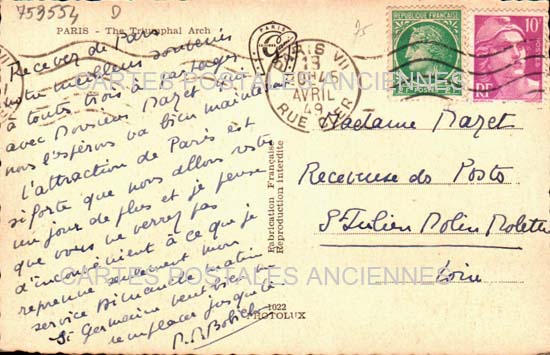 759554 D
PARIS - The Triumphal Arch
Recevez de Paris
meilleurs souvenirs
à toutes trois à partager
avec Monsieur Mazet qui
nous l'espérons va bien maintenant
l'attraction de Paris est
si forte que nous allons rester
un jour de plus et je pense
que vous ne verrez pas
d'inconvénient à ce que je
reprenne seulement mon
service Dimanche matin
St Germaine veut bien
remplacer jusque là
PARIS VII
13
AVRIL
49
RUE CLER
REPUBLIQUE FRANÇAISE
POSTES
10F
RF
Madame Mazet
Receveuse des Postes
St Julien Molin Molette
Loire
Fabrication Française
Reproduction Interdite
1022
PROTOLUX
CARTES POSTALES ANCIENNES
CARTES POSTALES ANCIENNES